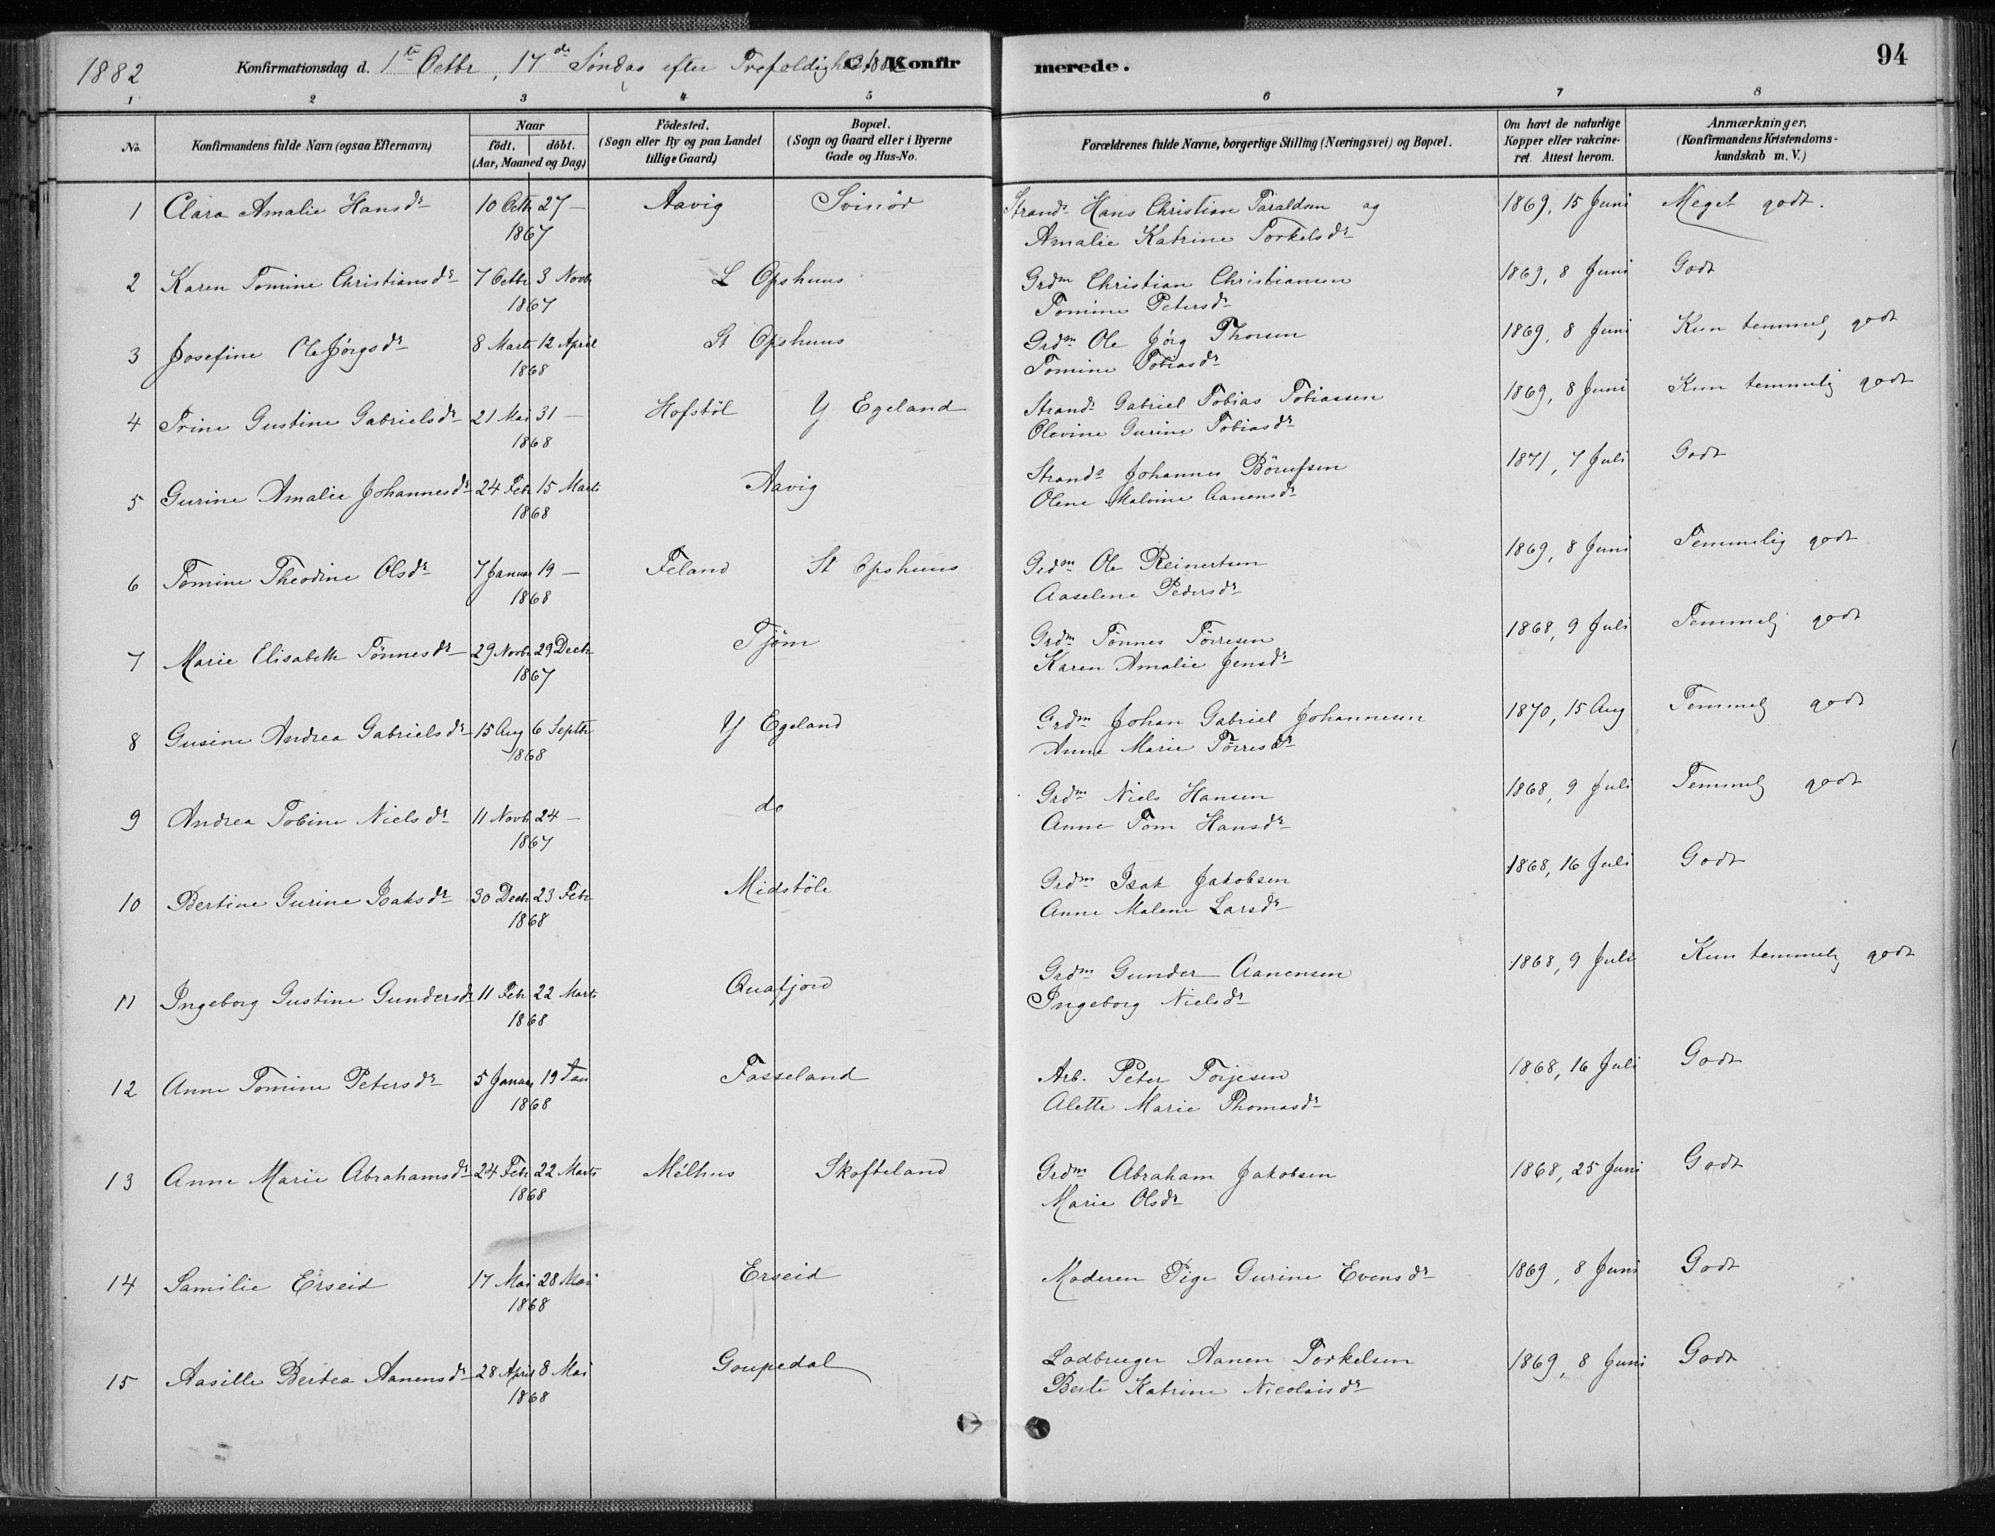 1882 Konfirmationsdag d. 1te Octbr, 17de Søndag efter Trefoldighed 1882 C. Konfirmerede. 94
1 2 3 4 5 6 7 8
No. Konfirmandens fulde Navn (ogsaa Efternavn) Naar födt. döbt. (Aar, Maaned og Dag) Födested. (Sogn eller By og paa Landet tillige Gaard) Bopæl. (Sogn og Gaard eller i Byerne Gade og Hus-No. Forældrenes fulde Navne, borgerlige Stilling (Næringsvei) og Bopæl. Om havt de naturlige Kopper eller vakcineret Attest herom. Anmærkninger. (Konfirmandens Kristendomskundskab m. V.)
1 Clara Amalie Hansdr 10 Octbr 27 — Aavig Svinör Strands Hans Christian Taraldsen og 1869, 15 Juni Meget godt.
1867 Amalie Katrine Torkelsdr
2 Karen Tomine Christiansdr 7 Octbr 3 Novbr L Opshuus Grdm Christian Christiansen 1869, 8 Juni Godt
1867 Tomine Petersdr
3 Josefine OleJørgsdr 8 Marts 12 April St Opshuus Grdm Ole Jørg Thorsen 1869, 8 Juni Kun temmel. godt
1868 Tomine Tobiasdr
4 Trine Gustine Gabrielsdr 21 Mai 31 — Hofstöl Y Egeland Strands Gabriel Tobias Tobiassen 1869, 8 Juni Kun temmelig godt
1868 Olevine Gurine Tobiasdr
5 Gurine Amalie Johannesdr 24 Febr 15 Marts Aavig Strands Johannes Börufsen 1871, 7 Juli Godt
1868 Olene Malvine Aanensdr
6 Tomine Theodine Olsdr 7 Januar 19 — Feland St Opshuus Grdm Ole Reinertsen 1869, 8 Juni Temmelig godt
1868 Aaselene Pedersdr
7 Marie Elisabeth Tönnesdr 29 Novbr 29 Decbr Tjöm Grdm Tönnes Törresen 1868, 9 Juli Temmelig godt
1867 Karen Amalie Jensdr
8 Gusine Andrea Gabrielsdr 15 Aug 6 Septbr Y Egeland Grdm Johan Gabriel Johannesen 1870, 15 Aug Temmelig godt
1868 Anne Marie Törresdr
9 Andrea Tobine Nielsdr 11 Novbr 24 — do Grdm Niels Hansen 1868, 9 Juli Temmelig godt
1867 Anne Tom Hansdr
10 Bertine Gurine Isaksdr 30 Decbr 23 Febr Midstöle Grdm Isak Jakobsen 1868, 16 Juli Godt
1868 Anne Malene Larsdr
11 Ingeborg Gustine Gundersdr 11 Febr 22 Marts Quafjord Grdm Gunder Aanensen 1868, 9 Juli Kun temmelig godt
1868 Ingeborg Nielsdr
12 Anne Tomine Petersdr 5 Januar 19 Jan Fasseland Arb. Peter Torjesen 1868, 16 Juli Godt
1868 Alette Marie Thomasdr
13 Anne Marie Abrahamsdr 24 Febr 22 Marts Mélhus Skofteland Grdm Abraham Jakobsen 1868, 25 Juni Godt
1868 Marie Olsdr
14 Samilie Erseid 17 Mai 28 Mai Erseid Moderen Pige Gurine Evensdr 1869, 8 Juni Godt
1868
15 Aasille Bertea Aanensdr 28 April 8 Mai Goupedal Lodbruger Aanen Torkelsen 1869, 8 Juni Godt
1868 Berte Katrine Nicolaisdr